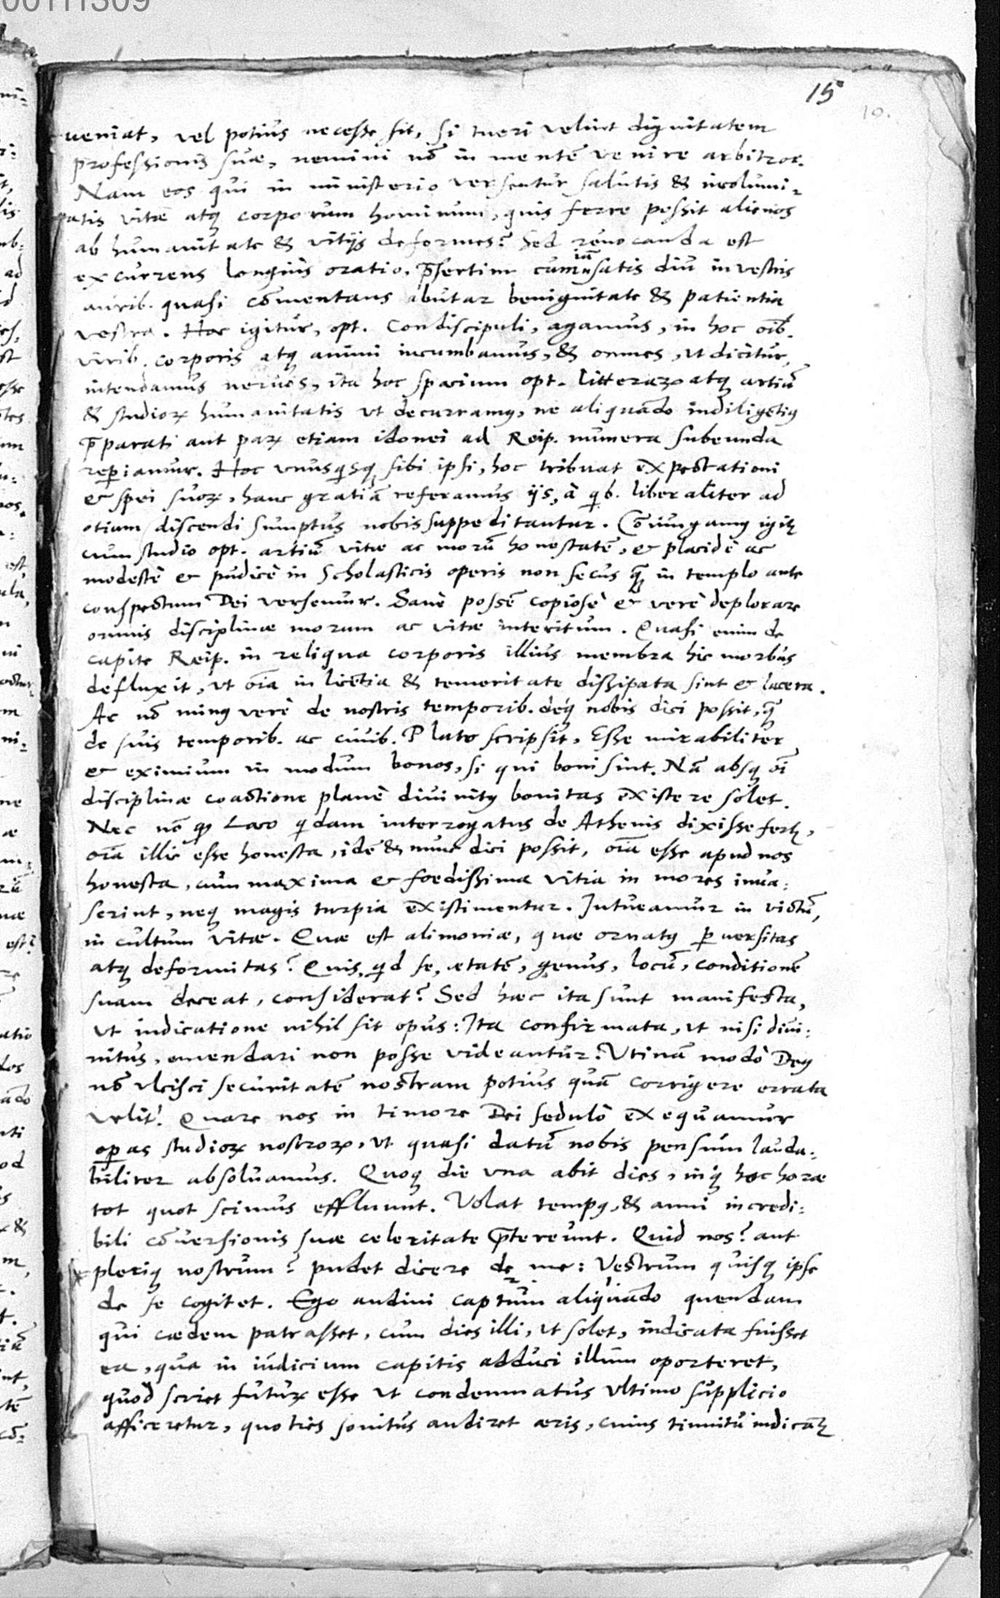 00111309
15
10.
ueniat, vel potius necesse sit, si tueri velint dignitatem
professionis suæ, nemini nō in mentē venire arbitror.
Nam eos qui in ministerio versentur salutis & incolumi-
tatis vitæ atq; corporum hominum, quis ferre possit alienos
ab humanitate & vitijs deformes? Sed reuocanda est
excurrens longius oratio, p̄sertim cum iā satis diu in vestris
aurib. quasi cōmentans abutar benignitate & patientia
vestra. Hoc igitur, opt. Condiscipuli, agamus, in hoc oīb.
virib. corporis atq; animi incumbamus, & omnes, ut dicitur,
intendamus neruos, ita hoc spacium opt. litterarꝝ atq; artiū
& studiorꝝ humanitatis ut decurramꝰ, ne aliquādo indiligētiꝰ
p̄parati aut parꝝ etiam idonei ad Reip. munera subeunda
reperiamur. Hoc vnusqsq; sibi ipsi, hoc tribuat expectationi
& spei suorꝝ, hanc gratiā referamus ijs, à qb. liberaliter ad
otium discendi sumptus nobis suppeditantur. Cōiungamꝰ igitꝝ
cum studio opt. artiū vitæ ac morū honestatē, & placidè ac
modestè & pudicè in Scholasticis operis non secus q̄ in templo ante
conspectum Dei versemur. Sanè possē copiosè & verè deplorare
omnis disciplinæ morum ac vitæ interitum. Quasi enim de
capite Reip. in reliqua corporis illius membra hic morbus
defluxit, ut oīa in licētia & temeritate dissipata sint & lacera.
Ac nō minꝰ verè de nostris temporib. deq; nobis dici possit, q̄
de suis temporib. ac ciuib. Plato scripsit, Esse mirabiliter
& eximium in modum bonos, si qui boni sint. Nā absq; oī
disciplinæ coactione planè diuinitꝰ bonitas existere solet.
Nec nō qꝫ Laco qdam interrogatus de Athenis dixisse fertꝝ,
oīa illic esse honesta, idē & nunc dici possit, oīa esse apud nos
honesta, cum maxima & fœdissima vitia in mores inua-
serint, neq; magis turpia existimentur. Intueamur in victū,
in cultum vitæ. Quæ est alimoniæ, quæ ornatꝰ puersitas
atq; deformitas? Quis, qd se, ætatē, genus, locū, conditionē
suam deceat, considerat? Sed hæc ita sunt manifesta,
ut indicatione nihil sit opus: Ita confirmata, ut nisi diui-
nitus, emendari non posse videantur. Vtinā modò Deꝰ
nō vlcisci securitatē nostram potius quā corrigere errata
velit! Quare nos in timore Dei sedulò exequamur
operas studiorꝝ nostrorꝝ, ut quasi datū nobis pensum lauda-
biliter absoluamus. Quoq; die vna abit dies, inq; hoc horæ
tot quot scimus effluunt. Volat tempꝰ, & anni incredi-
bili cōuersionis suæ celeritate p̄tereunt. Quid nos? aut
pleriq; nostrum? pudet dicere de me: Vestrum quisq; ipse
de se cogitet. Ego audiui captum aliquādo quendam
qui cædem patrasset, cum dies illi, ut solet, indicata fuisset
ea, qua in iudicium capitis adduci illum oporteret,
quòd sciret futurꝝ esse ut condemnatus vltimo supplicio
afficeretur, quoties sonitus audiret æris, cuius tinnitu indicatꝝ